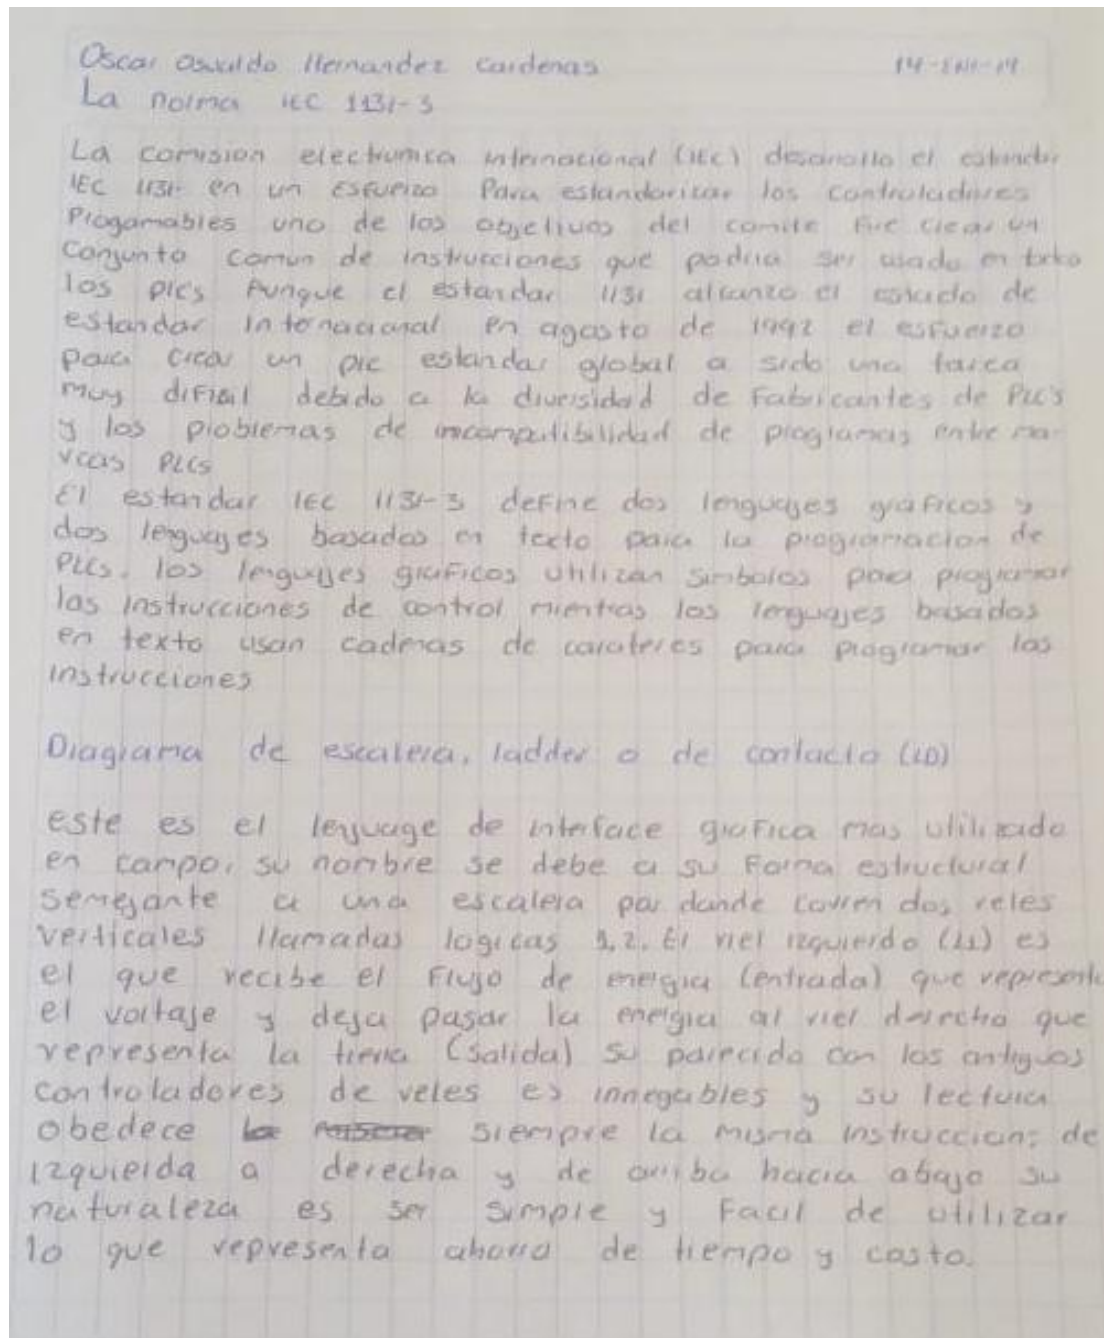 Oscar Osvaldo Hernandez Cardenas 14-ENE-19
La norma IEC 1131-3
La comision electrunica internacional (IEC) desarrollo el estandar
IEC 1131- en un esfuerzo Para estandarizar los controladores
Progamables uno de los objetivos del comite fue crear un
Conjunto comun de instrucciones que podria ser usado en todo
los plc's Aunque el estandar 1131 alcanzo el estado de
estandar Internacional en agosto de 1992 el esfuerzo
para crear un plc estandar global a sido una tarea
muy dificil debido a la diversidad de Fabricantes de PLC's
y los problemas de incompatibilidad de programas entre ma-
rcas PLCs
El estandar IEC 1131-3 define dos lenguajes graficos y
dos lenguajes basados en texto para la programacion de
PLCs. los lenguajes graficos utilizan simbolos para programar
las instrucciones de control mientras los lenguajes basados
en texto usan cadenas de carateres para programar las
instrucciones
Diagrama de escalera, ladder o de contacto (LD)
este es el lenguage de interface grafica mas utilizado
en campo, su nombre se debe a su Forma estructural
semejante a una escalera por donde corren dos reles
verticales llamadas logicas 1, 2. El riel izquierdo (L1) es
el que recibe el Flujo de energia (entrada) que representa
el voltaje y deja pasar la energia al riel derecho que
representa la tierra (salida) su parecido con los antiguos
controladores de reles es innegables y su lectura
obedece siempre la misma instruccion; de
izquierda a derecha y de arriba hacia abajo su
naturaleza es ser simple y Facil de utilizar
lo que representa ahorro de tiempo y costo.